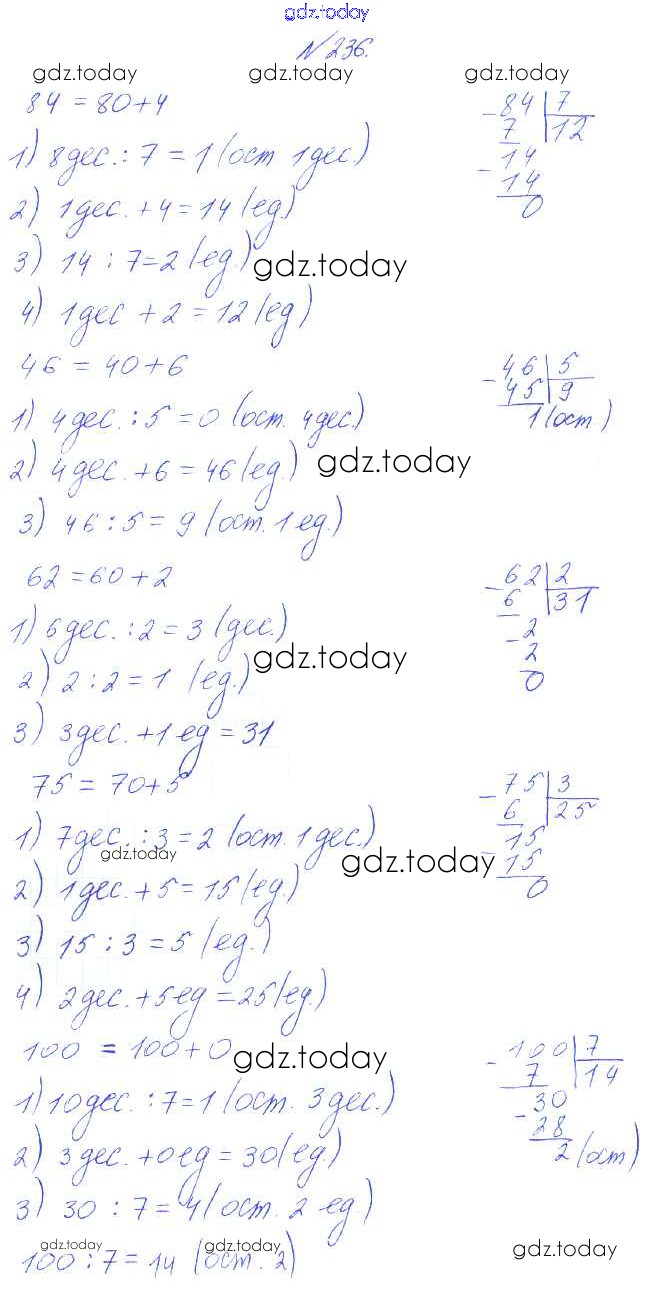 gdz.today
№236.
gdz.today gdz.today gdz.today
84 = 80+4
1) 8дес. : 7 = 1 (ост 1дес)
2) 1дес. + 4 = 14 (ед.)
3) 14 : 7 = 2 (ед.)
gdz.today
4) 1дес + 2 = 12 (ед)
- 84 | 7
7 | 12
- 14
14
0
46 = 40 + 6
1) 4дес. : 5 = 0 (ост. 4дес.)
2) 4дес. + 6 = 46 (ед.)
gdz.today
3) 46 : 5 = 9 (ост. 1 ед.)
- 46 | 5
45 | 9
1 (ост.)
62 = 60 + 2
1) 6дес. : 2 = 3 (дес.)
2) 2 : 2 = 1 (ед.)
gdz.today
3) 3дес. + 1 ед = 31
- 62 | 2
6 | 31
- 2
2
0
75 = 70 + 5
1) 7дес. : 3 = 2 (ост. 1дес.)
gdz.today gdz.today
2) 1дес. + 5 = 15 (ед.)
3) 15 : 3 = 5 (ед.)
4) 2дес. + 5ед = 25(ед.)
- 75 | 3
6 | 25
15
- 15
0
100 = 100 + 0
gdz.today
1) 10дес. : 7 = 1 (ост. 3дес.)
2) 3дес. + 0ед = 30(ед.)
3) 30 : 7 = 4 (ост. 2 ед.)
100 : 7 = 14 (ост. 2)
gdz.today gdz.today gdz.today
- 100 | 7
7 | 14
- 30
28
2 (ост)